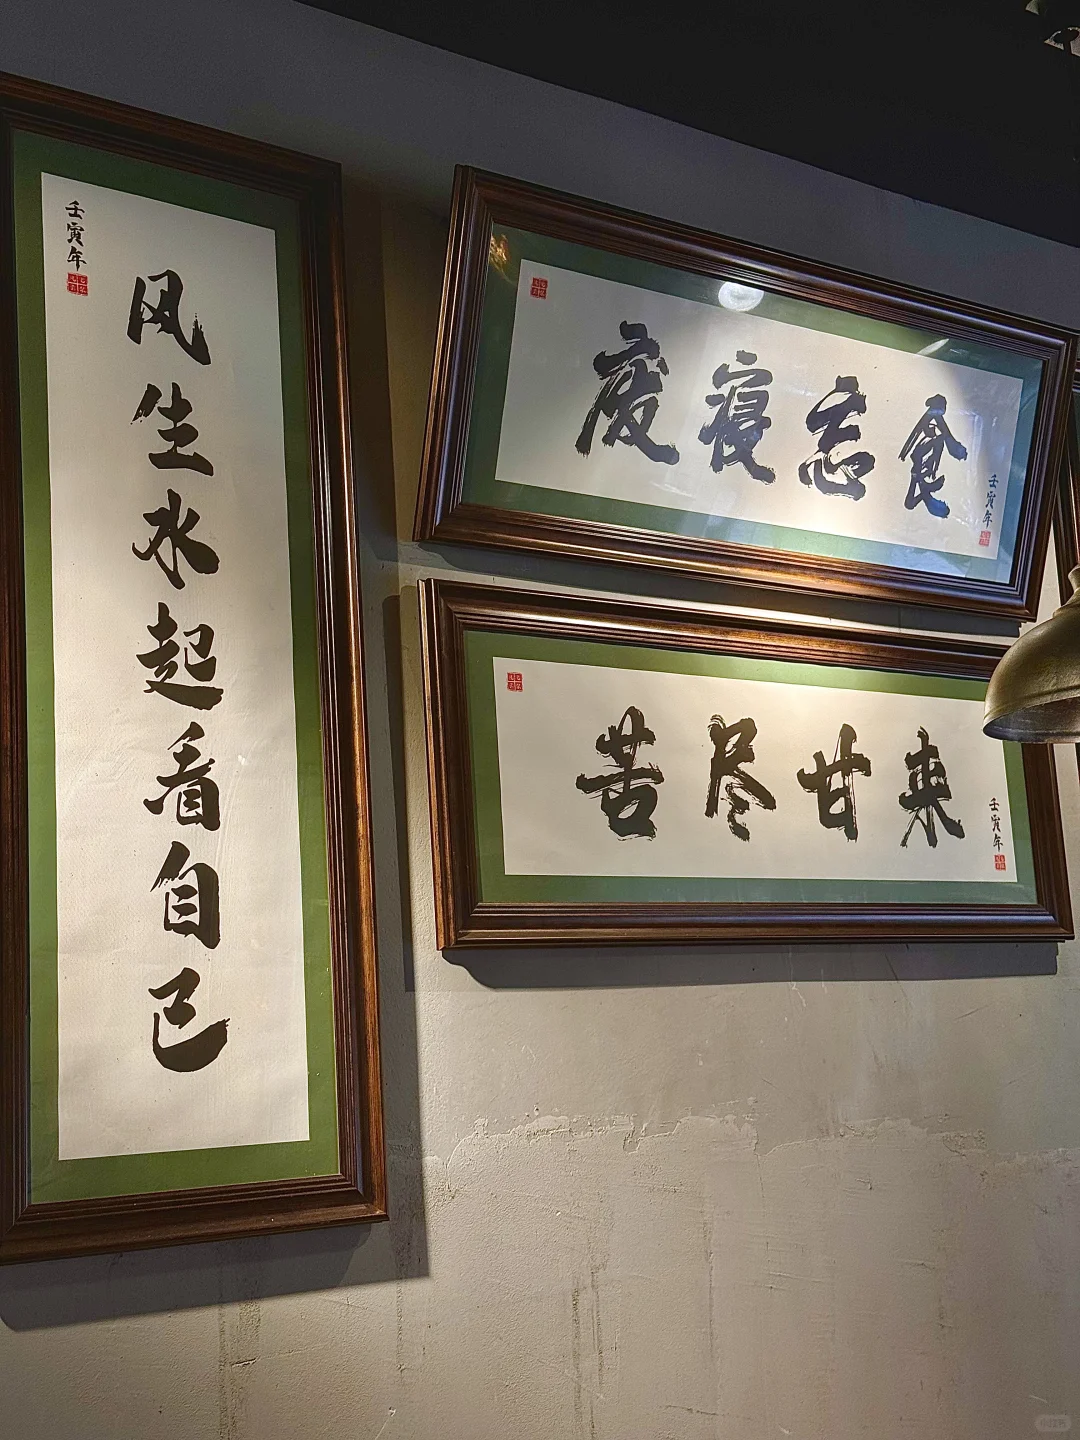 壬寅年
风生水起看自己
废寝忘食
壬寅年
苦尽甘来
壬寅年